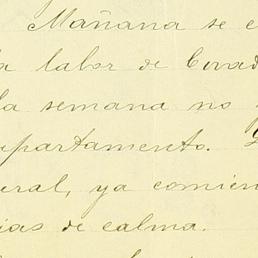 Mañana se c
a labor de Cuad
la semana no
partamento.
ral, ya comien
ias de calma.